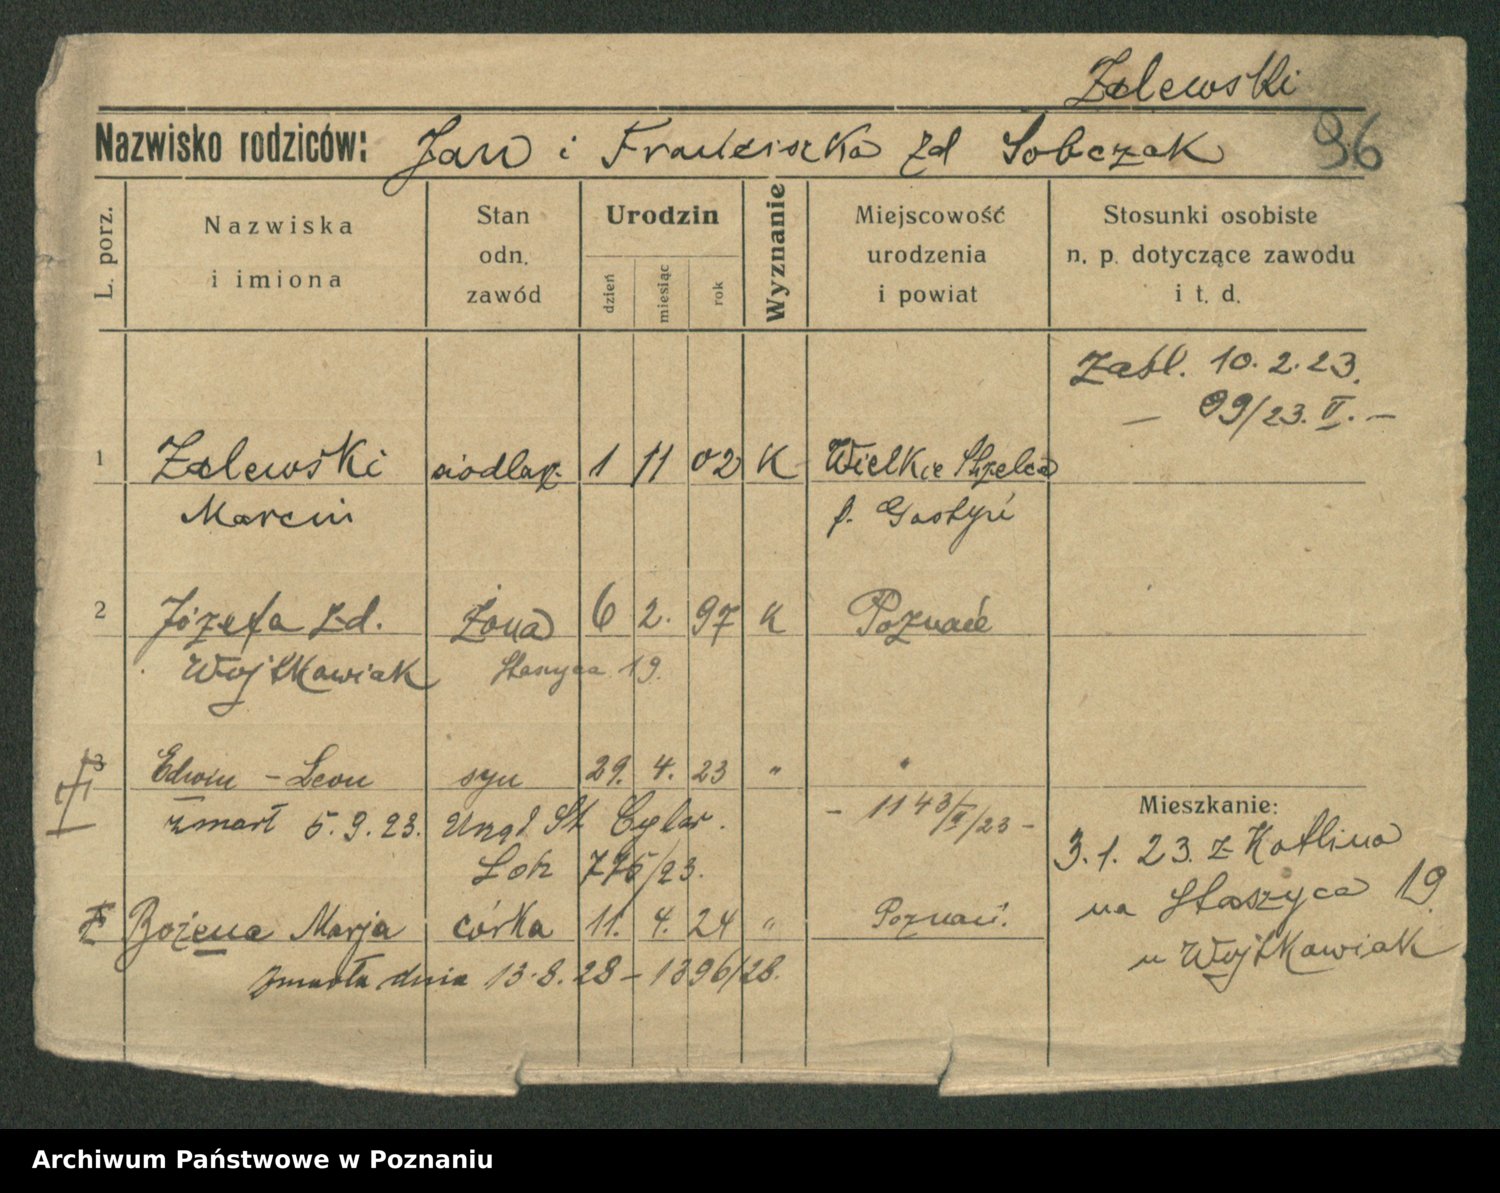 Zalewski
Nazwisko rodziców: Jan i Franciszka zd Sobczak 96
L. porz.
Nazwiska
i imiona
Stan
odn.
zawód
Urodzin
dzień
miesiąc
rok
Wyznanie
Miejscowość
urodzenia
i powiat
Stosunki osobiste
n. p. dotyczące zawodu
i t. d.
10.2.23.
— 99/23. V. —
1 Zalewski siodlarz 1 11 02 K Wielkie Strzelcza
Marcin p. Gostyń
2 Józefa zd. żona 6 2. 97 K Poznań
Wojtkowiak Staszyca 19.
3 Edwin - Leon syn 29. 4. 23 " "
zmarł 5.9.23. Urząd St Cywar. - 1143/V/23 -
775/23.
Mieszkanie:
3.1.23. z Kotlina
na Staszyca 19
u Wojtkowiak
Bożena Marja córka 11. 4. 24 " Poznań.
zmarła dnia 13.8.28 - 1396/28.
Archiwum Państwowe w Poznaniu